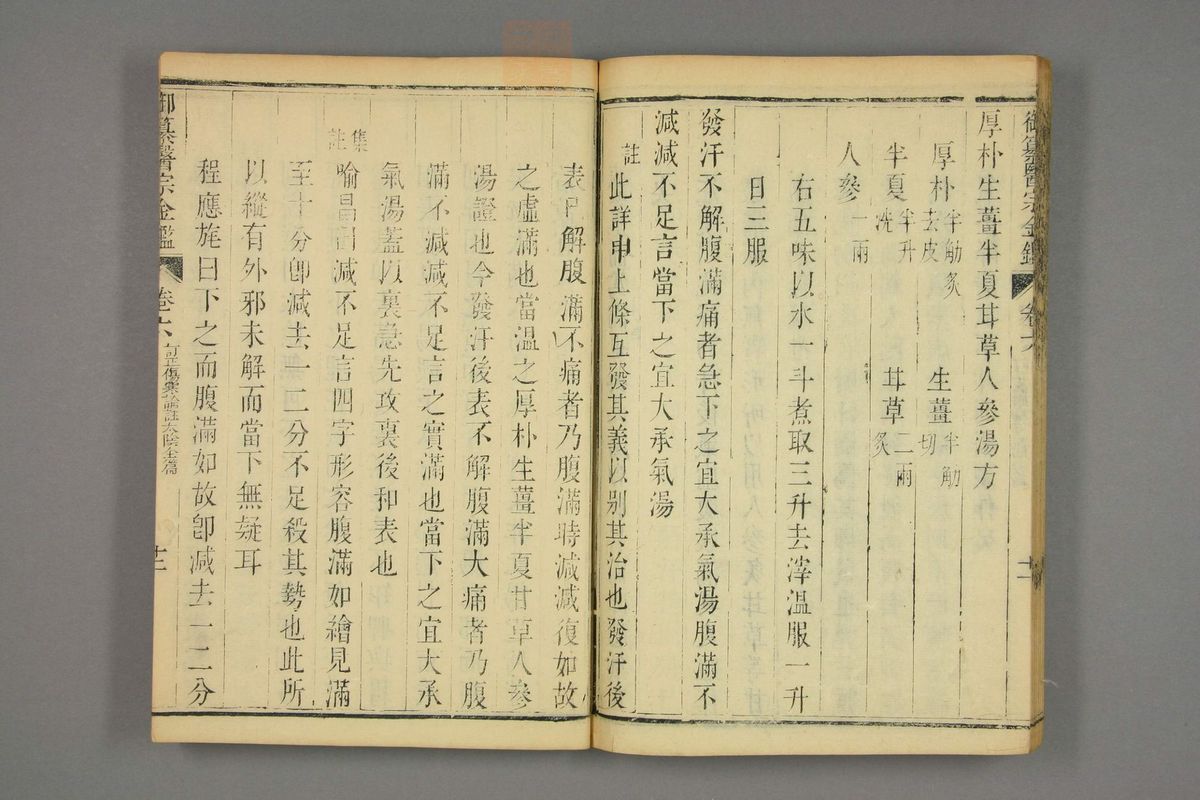 御纂醫宗金鑑 卷六 十一
厚朴生薑半夏甘草人參湯方
厚朴半觔炙去皮 生薑半觔切
半夏半升洗 甘草二兩炙
人參一兩
右五味以水一斗煮取三升去滓溫服一升
日三服
發汗不解腹滿痛者急下之宜大承氣湯腹滿不
減減不足言當下之宜大承氣湯
註此詳申上條互發其義以別其治也發汗後
表已解腹滿不痛者乃腹滿時減減復如故
之虛滿也當溫之厚朴生薑半夏甘草人參
湯證也今發汗後表不解腹滿大痛者乃腹
滿不減減不足言之實滿也當下之宜大承
氣湯蓋以裏急先攻裏後和表也
集註喻昌曰減不足言四字形容腹滿如繪見滿
至十分卽減去一二分不足殺其勢也此所
以縱有外邪未解而當下無疑耳
程應旄曰下之而腹滿如故卽減去一二分
御纂醫宗金鑑 卷六 訂正傷寒論註太陰全篇 十二